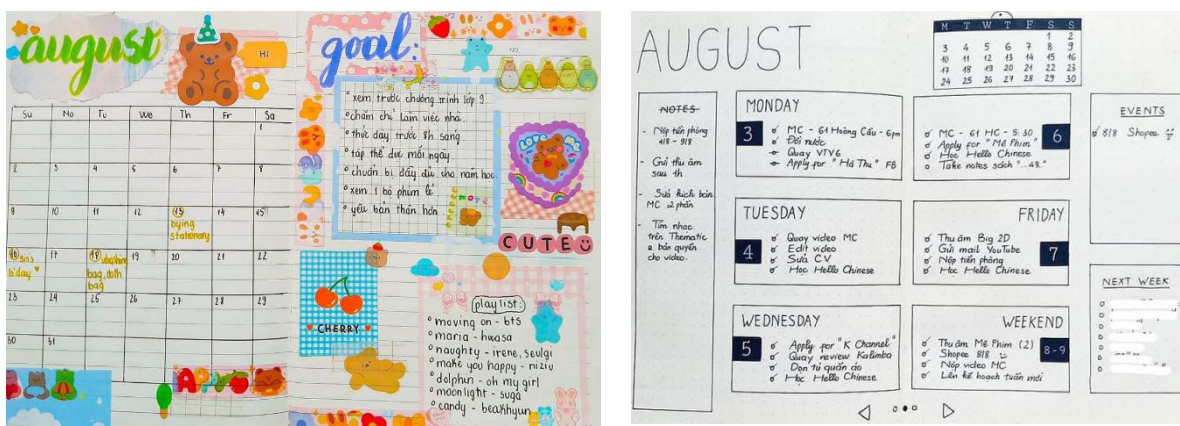 august
Hi
Su Mo Tu We Th Fr Sa
1
2 3 4 5 6 7 8
9 10 11 12 13 14 15
bying
stationary
16 17 18 19 20 21 22
b'day
bag, toth
bag
23 24 25 26 27 28 29
30 31
goal:
NO.
xem trước chương trình lớp 9
chăm chỉ làm việc nhà
thức dậy trước 8h sáng
tập thể dục mỗi ngày
chuẩn bị đầy đủ cho năm học
xem 1 bộ phim lẻ
yêu bản thân hơn
LOVE me
CUTE
CHERRY
playlist:
moving on - bts
maria - hwasa
naughty - irene, seulgi
make you happy - niziu
dolphin - oh my girl
moonlight - suga
candy - beakhyun
AUGUST
M T W T F S S
1 2
3 4 5 6 7 8 9
10 11 12 13 14 15 16
17 18 19 20 21 22 23
24 25 26 27 28 29 30
NOTES
- Nộp tiền phòng
4|8 - 9|8
- Gửi thu âm
sau 1h
- Sửa kịch bản
MC 2 phần
- Tìm nhạc
trên Thematic
bản quyền
cho video.
MONDAY
3
MC - 61 Hoàng Cầu - 6pm
Đổi nước
Quay VTV6
Apply for "Hà Thu" FB
TUESDAY
4
Quay video MC
Edit video
Sửa CV
Học Hello Chinese
WEDNESDAY
5
Apply for "K Channel"
Quay review Kalimba
Dọn tủ quần áo
Học Hello Chinese
6
MC - 61 HC - 5:30
Apply for "Mê Phim"
Học Hello Chinese
Take notes sách "...48."
FRIDAY
7
Thu âm Big 2D
Gửi mail YouTube
Nộp tiền phòng
Học Hello Chinese
WEEKEND
8-9
Thu âm Mê Phim (2)
Shopee 8|8
Nộp video MC
Lên kế hoạch tuần mới
EVENTS
8|8 Shopee
NEXT WEEK